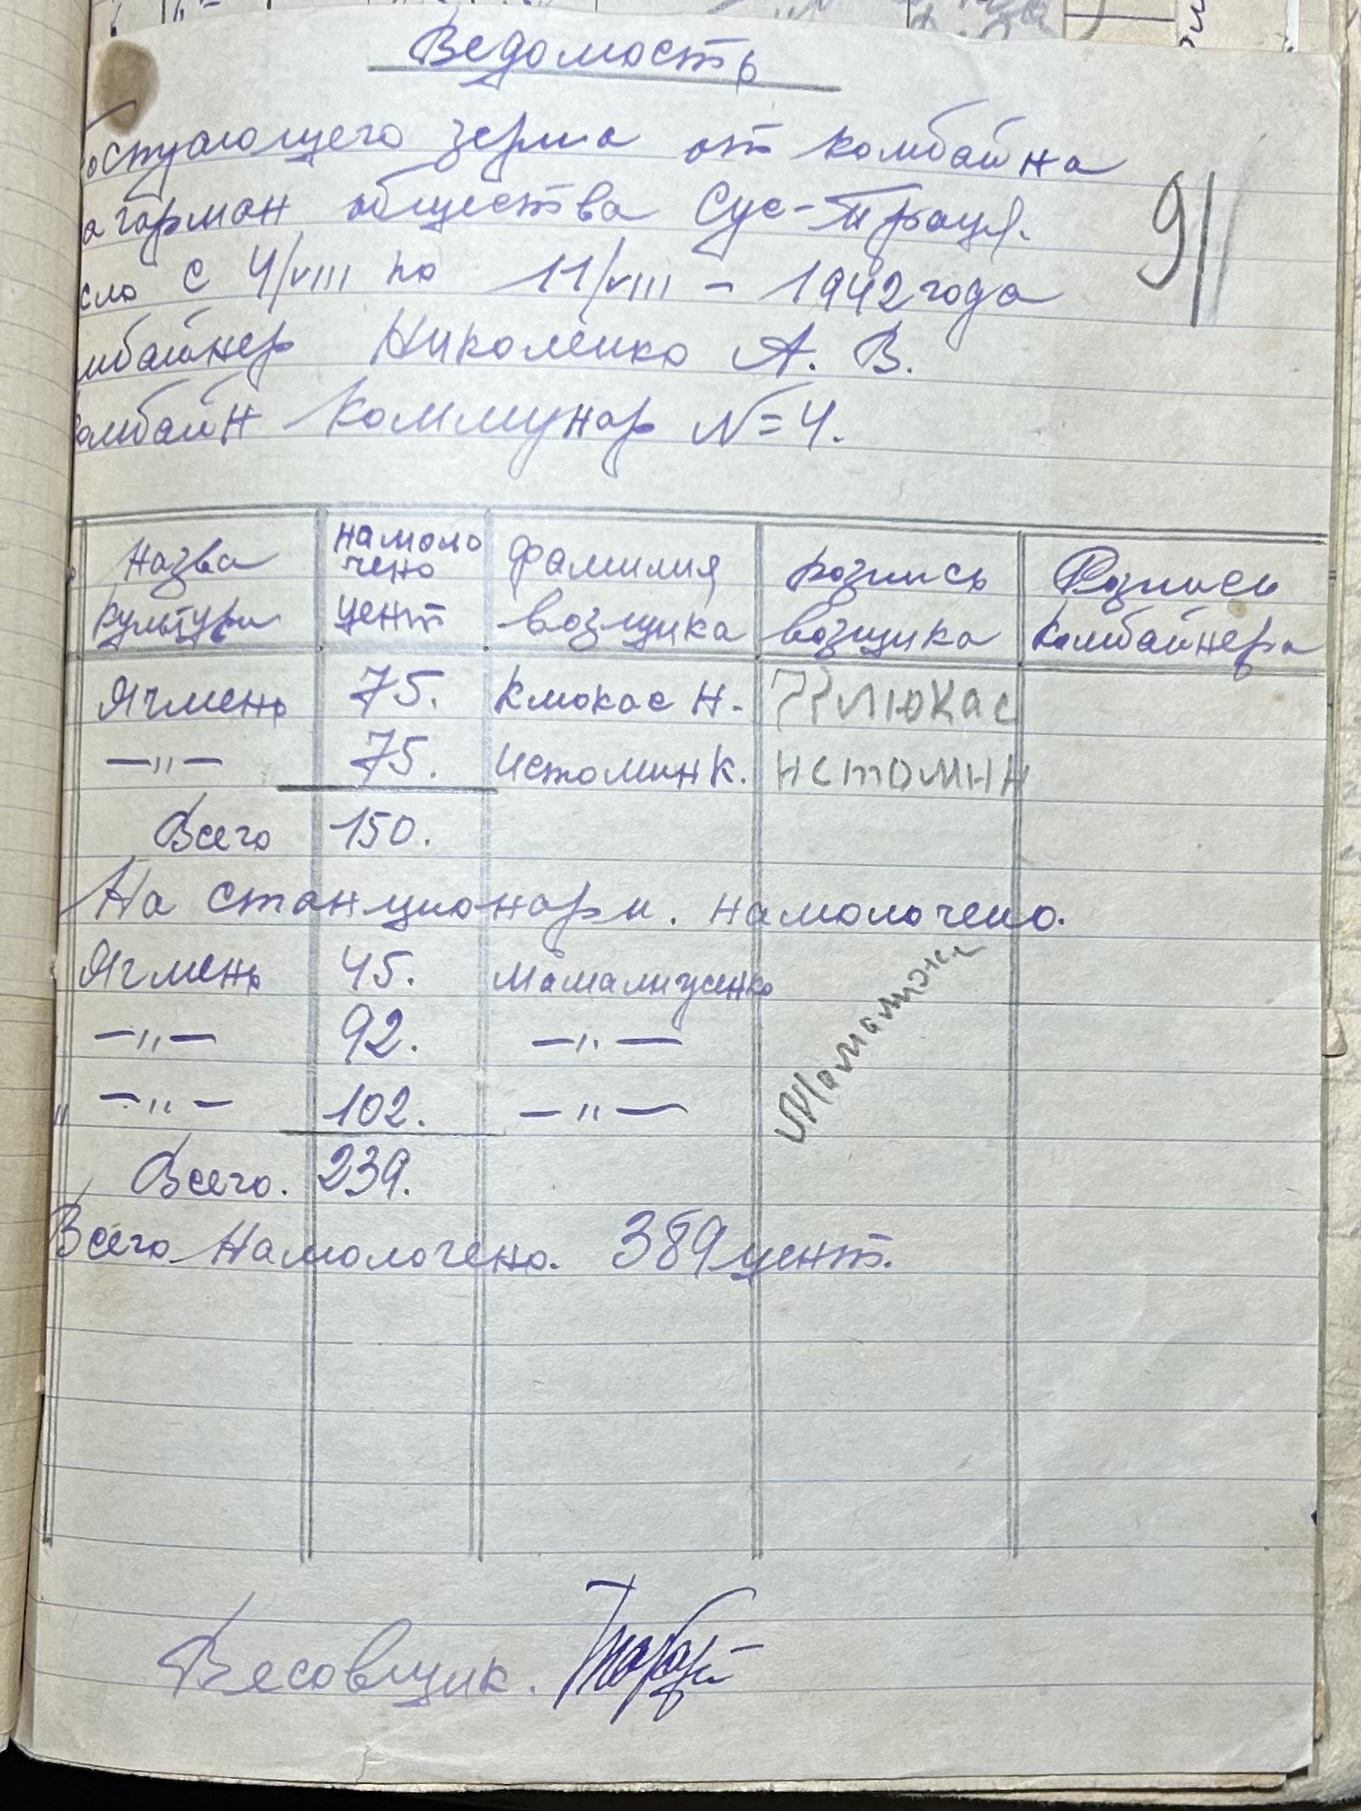 Ведомость
оступающего зерна от комбайна
а гарман общества Сус-Трьоця.
сло с 4/VIII по 11/VIII - 1942 года
мбайнер Николенко А. В.
комбайн Коммунар №=4.
91
Назва культури
намолочено цент
фамилия возщика
розпись возщика
Розпись комбайнера
Ячмень 75. Клюкас Н. Клюкас
—"— 75. Истомин К. Истомин
Всего 150.
На станционарн. намолочено.
Ячмень 45. Мамалигенко
—"— 92. —"—
—"— 102. —"—
Всего. 239.
Всего намолочено. 389 цент.
Весовщик.